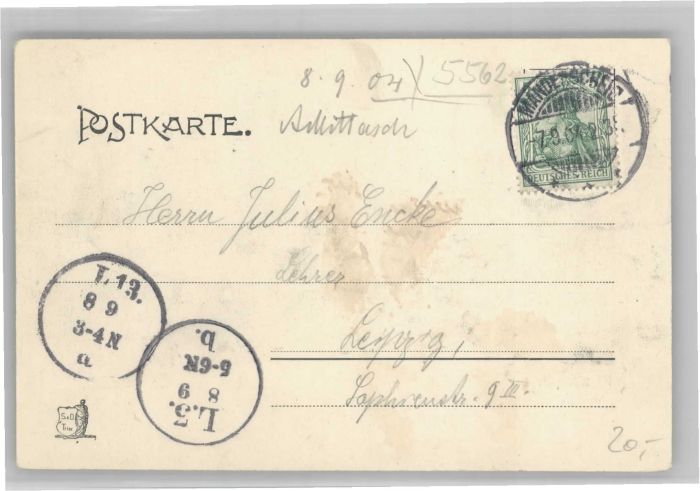 8.9.04 5562
POSTKARTE.
MANDERSCHEID
7.9.04
DEUTSCHES REICH
Herrn Julius Encke
Lehrer
Leipzig,
Sophienstr. 9 III.
L 13.
8 9
3-4N
a
L.3.
8 9
5-6N
b.
S&D
Trier
20,-